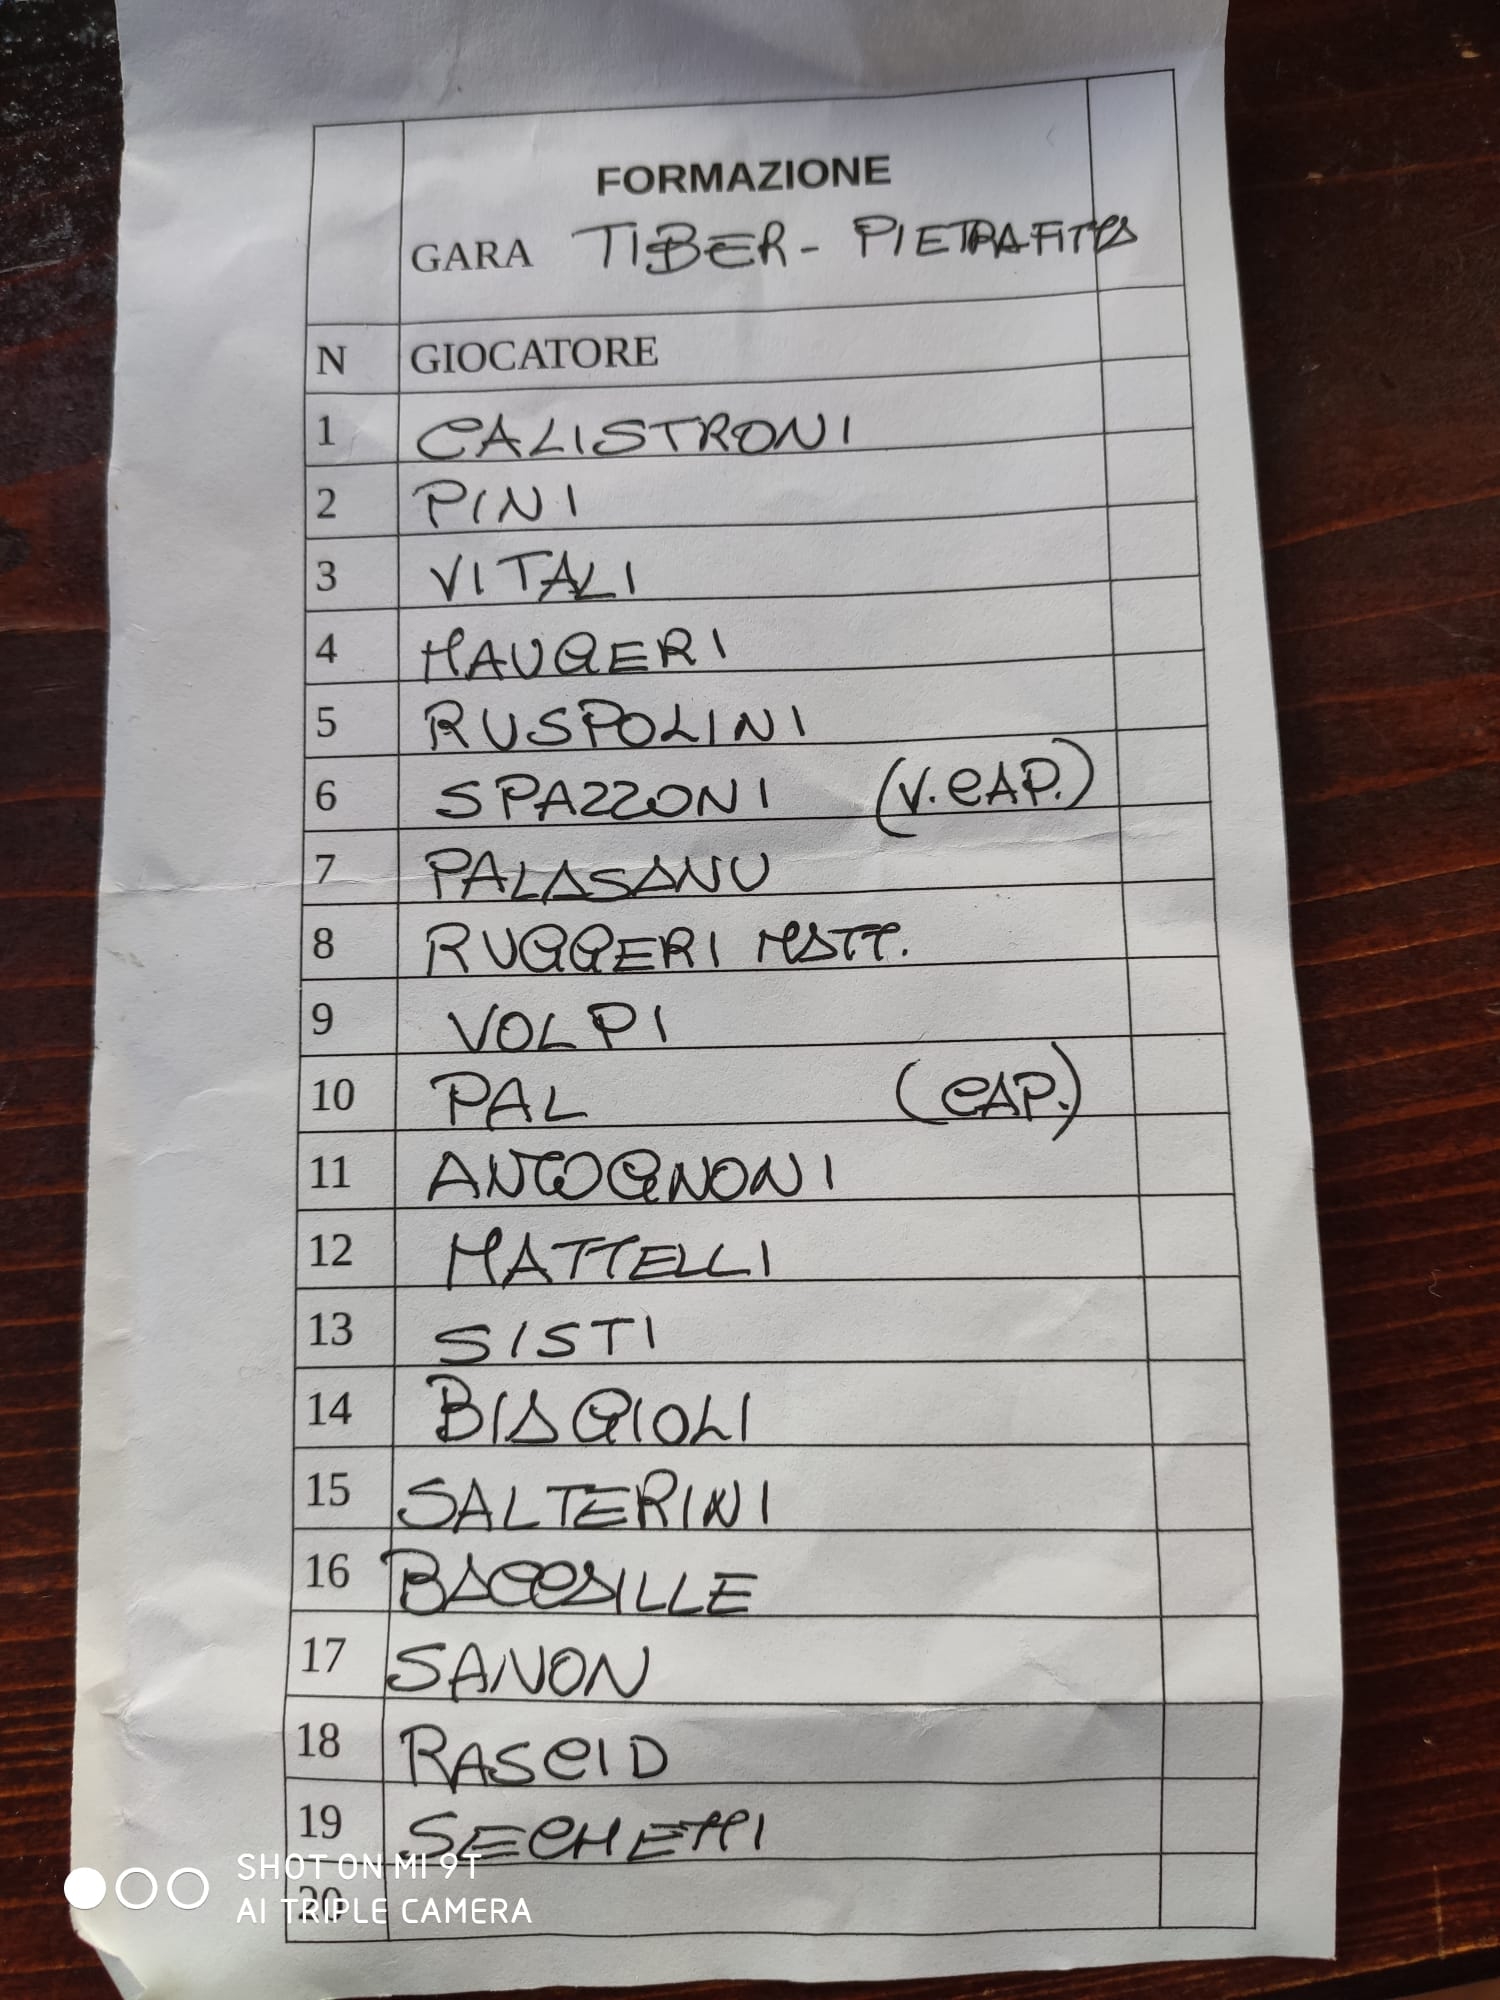 FORMAZIONE
GARA TIBER - PIETRAFITTA
N GIOCATORE
1 CALISTRONI
2 PINI
3 VITALI
4 MAUGERI
5 RUSPOLINI
6 SPAZZONI (V. CAP.)
7 PALASANU
8 RUGGERI MATT.
9 VOLPI
10 PAL (CAP.)
11 ANTOGNONI
12 MATTELLI
13 SISTI
14 BIAGIOLI
15 SALTERINI
16 BACCAILLE
17 SANON
18 RASCID
19 SECHETTI
20
SHOT ON MI 9T
AI TRIPLE CAMERA